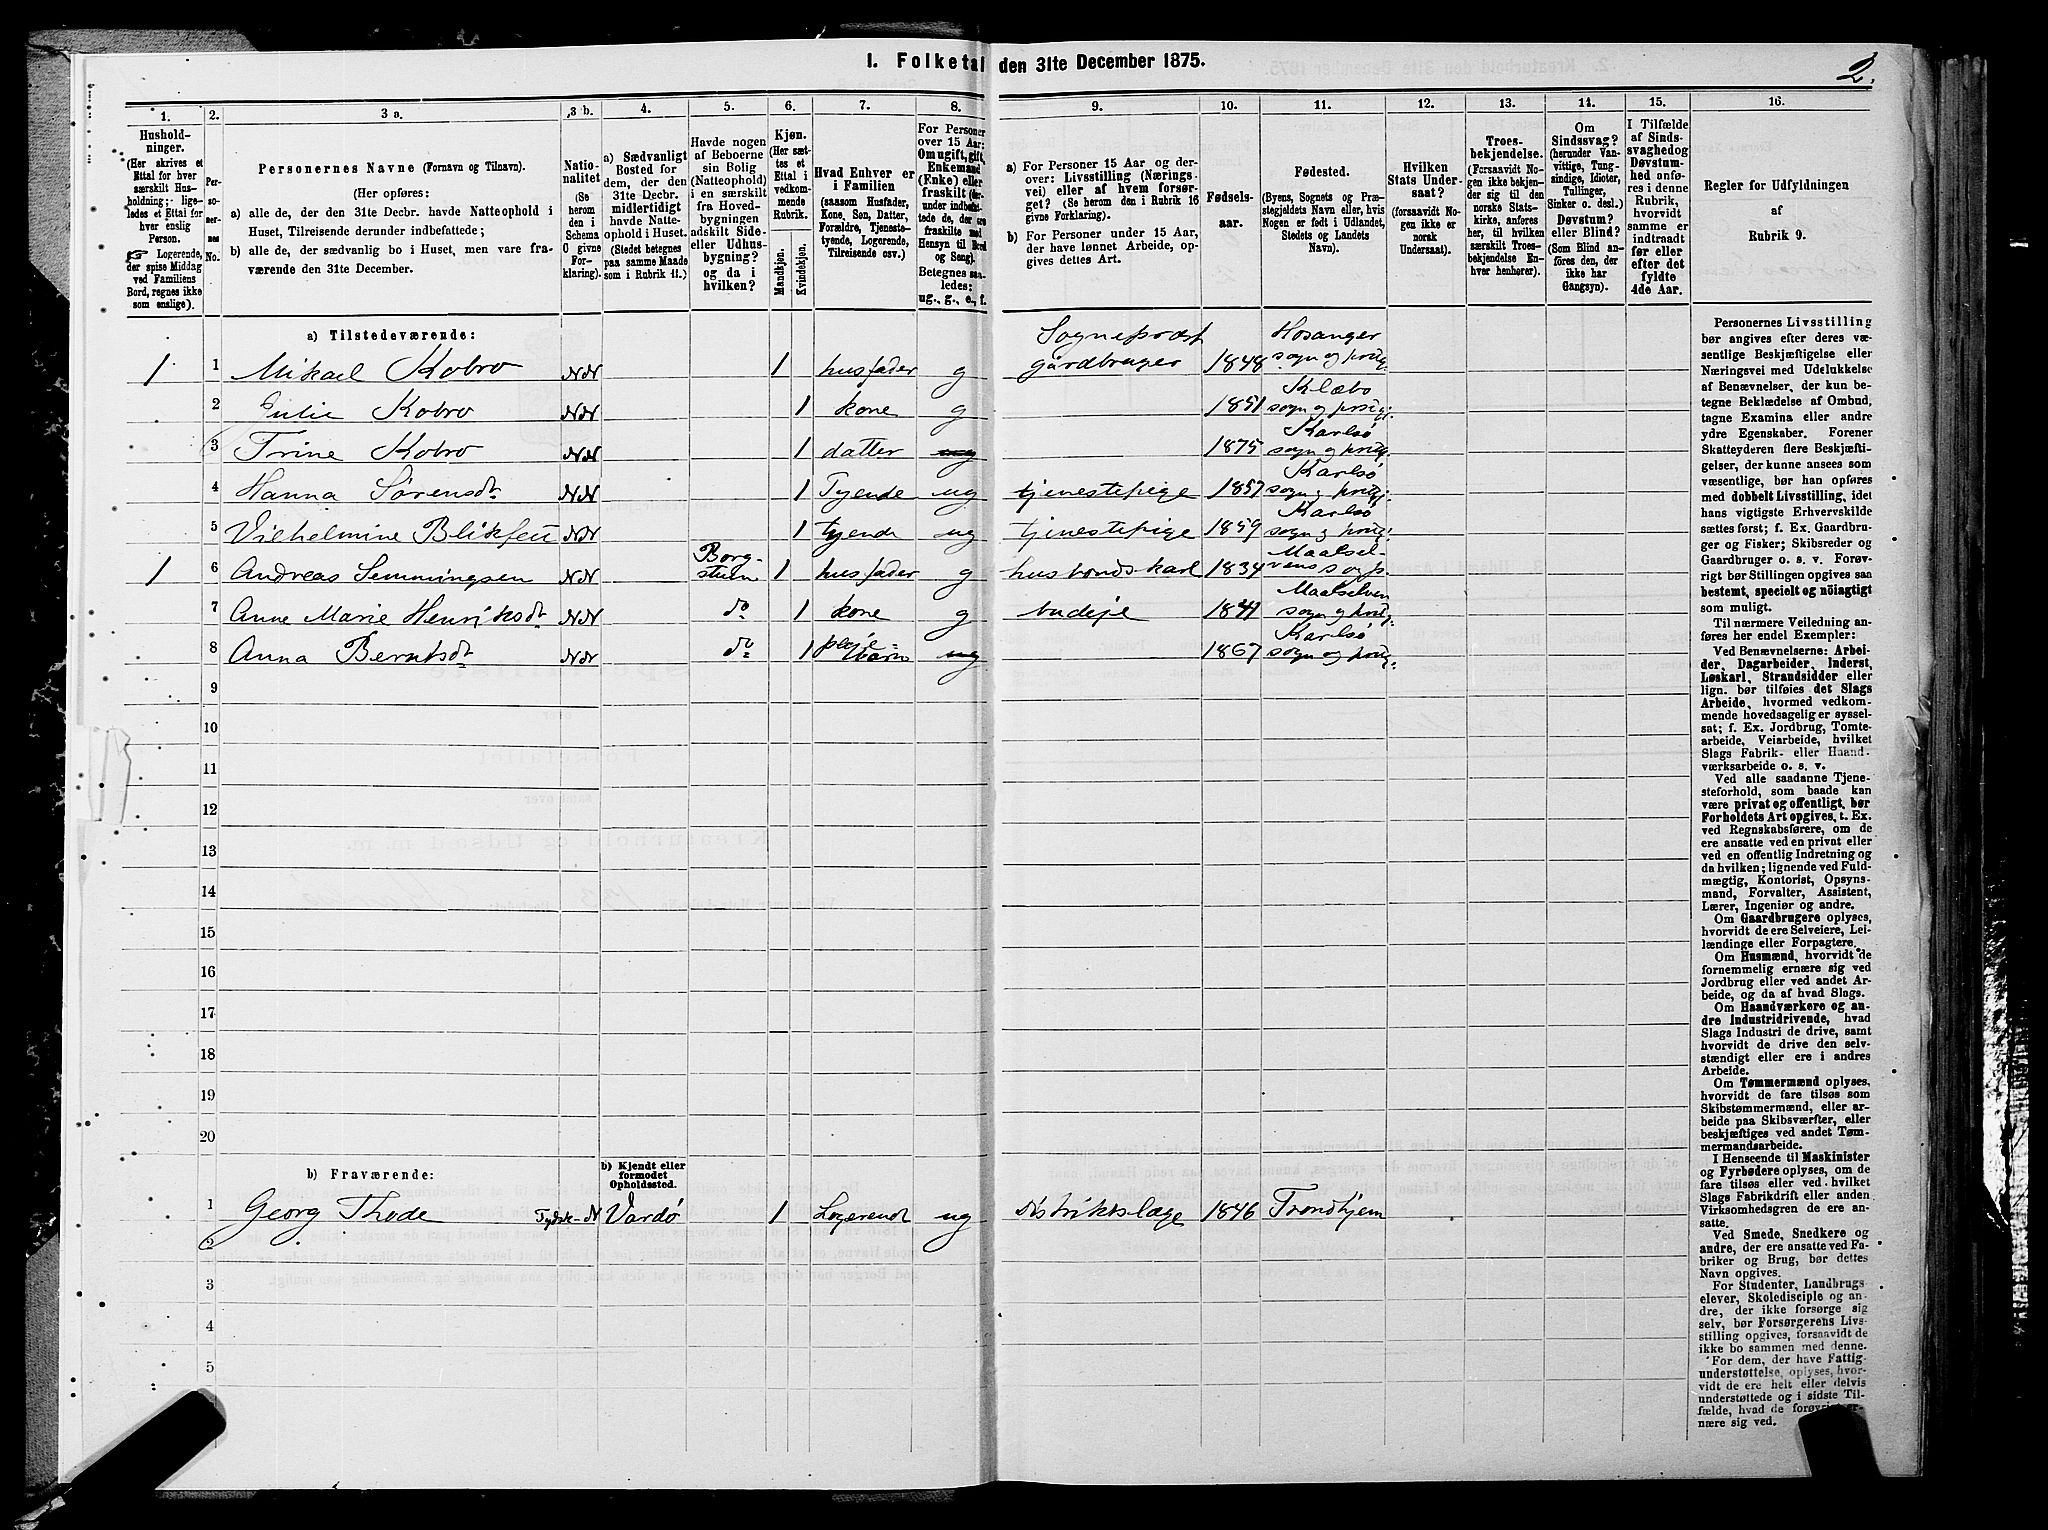 1. Folketal den 31te December 1875.
2.
1.
Hushold-
ninger.
(Her skrives et
Ettal for hver
særskilt Hus-
holdning; lige-
ledes et Ettal for
hver enslig
Person.
☞ Logerende,
der spise Middag
ved Familiens
Bord, regnes ikke
som enslige).
2.
Per-
so-
ner-
nes
No.
3 a.
Personernes Navne (Fornavn og Tilnavn).
(Her opføres:
a) alle de, der den 31te Decbr. havde Natteophold i
Huset, Tilreisende derunder indbefattede;
b) alle de, der sædvanlig bo i Huset, men vare fra-
værende den 31te December.
3 b.
Natio-
nalitet
(Se
herom
den i
Schema
C givne
For-
klaring).
4.
a) Sædvanligt
Bosted for
dem, der den
31te Decbr.
midlertidigt
havde Natte-
ophold i Huset.
(Stedet betegnes
paa samme Maade
som i Rubrik 11.)
5.
Havde nogen
af Beboerne
sin Bolig
(Natteophold)
i en særskilt
fra Hoved-
bygningen
adskilt Side-
eller Udhus-
bygning?
og da i
hvilken?
6.
Kjøn.
(Her sæt-
tes et
Ettal i
vedkom-
mende
Rubrik.
Mandkjøn.
Kvindekjøn.
7.
Hvad Enhver er
i Familien
(saasom Husfader,
Kone, Søn, Datter,
Forældre, Tjeneste-
tyende, Logerende,
Tilreisende osv.)
8.
For Personer
over 15 Aar:
Om ugift, gift,
Enkemand
(Enke) eller
fraskilt (her-
under indbefat-
tede de, der ere
fraskilte med
Hensyn til Bord
og Seng).
Betegnes saa-
ledes:
ug., g., e., f.
9.
a) For Personer 15 Aar og der-
over: Livsstilling (Nærings-
vei) eller af hvem forsør-
get? (Se herom den i Rubrik 16
givne Forklaring).
b) For Personer under 15 Aar,
der have lønnet Arbeide, op-
gives dettes Art.
10.
Fødsels-
aar.
11.
Fødested.
(Byens, Sognets og Præ-
stegjeldets Navn eller, hvis
Nogen er født i Udlandet,
Stedets og Landets
Navn).
12.
Hvilken
Stats Under-
saat?
(forsaavidt No-
gen ikke er
norsk
Undersaat).
13.
Troes-
bekjendelse.
(Forsaavidt No-
gen ikke bekjen-
der sig til den
norske Stats-
kirke, anføres
her, til hvilken
særskilt Troes-
bekjendelse En-
hver henhører).
14.
Om
Sindssvag?
(herunder Van-
vittige, Tung-
sindige, Idioter,
Tullinger,
Sinker o. desl.)
Døvstum?
eller Blind?
(Som Blind an-
føres den, der
ikke har
Gangsyn).
15.
I Tilfælde
af Sinds-
svaghed og
Døvstum-
hed anfø-
res i denne
Rubrik,
hvorvidt
samme er
indtraadt
før eller
efter det
fyldte
4de Aar.
16.
Regler for Udfyldningen
af
Rubrik 9.
a) Tilstedeværende:
1 1 Mikael Kobro NN 1 husfader g Sogneprest gårdbruger 1848 Hosanger sogn og prstg.
2 Julie Kobro NN 1 kone g 1851 Klæbo sogn og prstg.
3 Trine Kobro NN 1 datter ug 1875 Karlsø sogn og prstg.
4 Hanna Sørensdt. NN 1 Tyende ug tjenestepige 1857 Karlsø sogn og prstg.
5 Vilhelmine Blikfeu NN 1 tyende ug tjenestepige 1859 Karlsø sogn og prstg.
1 6 Andreas Semmingsen NN Borg-stuen 1 husfader g husbondskarl 1834 Maalselvens s og p.
7 Anne Marie Henriksdt. NN do 1 kone g budeje 1841 Maalselven sogn og prstg.
8 Anna Berntsdt. NN do 1 plejebarn ug 1867 Karlsø sogn og prstg.
9
10
11
12
13
14
15
16
17
18
19
20
b) Fraværende:
b) Kjendt eller
formodet
Opholdssted.
1 Georg Thode Tydsk-N Vardø 1 Logerende ug Distriktslæge 1846 Trondhjem
2
3
4
5
Personernes Livsstilling
bør angives efter deres væ-
sentlige Beskjæftigelse eller
Næringsvei med Udelukkelse
af Benævnelser, der kun be-
tegne Beklædelse af Ombud,
tagne Examina eller andre
ydre Egenskaber. Forener
Skatteyderen flere Beskjæfti-
gelser, der kunne ansees som
væsentlige, bør han opføres
med dobbelt Livsstilling, idet
hans vigtigste Erhvervskilde
sættes først; f. Ex. Gaardbru-
ger og Fisker; Skibsreder og
Gaardbruger o. s. v. Forøv-
rigt bør Stillingen opgives saa
bestemt, specielt og nöiagtigt
som muligt.
Til nærmere Veiledning an-
føres her endel Exempler:
Ved Benævnelserne: Arbei-
der, Dagarbeider, Inderst,
Løskarl, Strandsidder eller
lign. bør tilføies det Slags
Arbeide, hvormed vedkom-
mende hovedsagelig er syssel-
sat; f. Ex. Jordbrug, Tomte-
arbeide, Veiarbeide, hvilket
Slags Fabrik- eller Haand-
værksarbeide o. s. v.
Ved alle saadanne Tjene-
steforhold, som baade kan
være privat og offentligt, bør
Forholdets Art opgives, t. Ex.
ved Regnskabsførere, om de
ere ansatte ved en privat eller
ved en offentlig Indretning og
da hvilken; lignende ved Fuld-
mægtig, Kontorist, Opsyns-
mand, Forvalter, Assistent,
Lærer, Ingeniør og andre.
Om Gaardbrugere oplyses,
hvorvidt de ere Selveiere, Lei-
lændinge eller Forpagtere.
Om Husmænd, hvorvidt de
fornemmelig ernære sig ved
Jordbrug eller ved andet Ar-
beide, og da af hvad Slags.
Om Haandværkere og an-
dre Industridrivende, hvad
Slags Industri de drive, samt
hvorvidt de drive den selv-
stændigt eller ere i andres
Arbeide.
Om Tømmermænd oplyses,
hvorvidt de fare tilsøs som
Skibstømmermænd, eller ar-
beide paa Skibsværfter, eller
beskjæftiges ved andet Tøm-
mermandsarbeide.
I Henseende til Maskinister
og Fyrbødere oplyses, om de
fare tilsøs eller ved hvilket
Slags Fabrikdrift eller anden
Virksomhedsgren de ere an-
satte.
Ved Smede, Snedkere og
andre, der ere ansatte ved Fa-
briker og Brug, bør dettes
Navn opgives.
For Studenter, Landbrugs-
elever, Skoledisciple og an-
dre, der ikke forsørge sig
selv, bør Forsørgerens Livs-
stilling opgives, forsaavidt de
ikke bo sammen med denne.
For dem, der have Fattig-
understøttelse, oplyses, hvor-
vidt de ere helt eller delvis
understøttede og i sidste Til-
fælde, hvad de forøvrigt er-
nære sig ved.